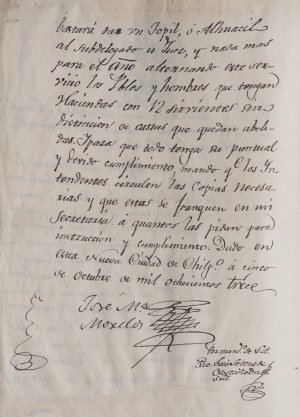 bastará dar vn Topil, ó Alhuacil
al Subdelegado u Juez, y nada mas
para el año alternando este ser-
vicio los Pblos y hombres que tengan
Haciendas con 12 sirvientes sin
distincion de castas que quedan aboli-
das. Y para que todo tenga su puntual
y devido cumplimiento, mando qe los In-
tendentes circulen las Copias necesa-
rias y que estas se franquen en mi
Secretaria á quantos las pidan para
intruccion y cumplimiento. Dado en
esta Nueva Ciudad de Chilpo á cinco
de octubre de mil ochocientos trece
José Ma
Morelos
Por mando de S.
Lic José Sotero de
Castañeda
Srio